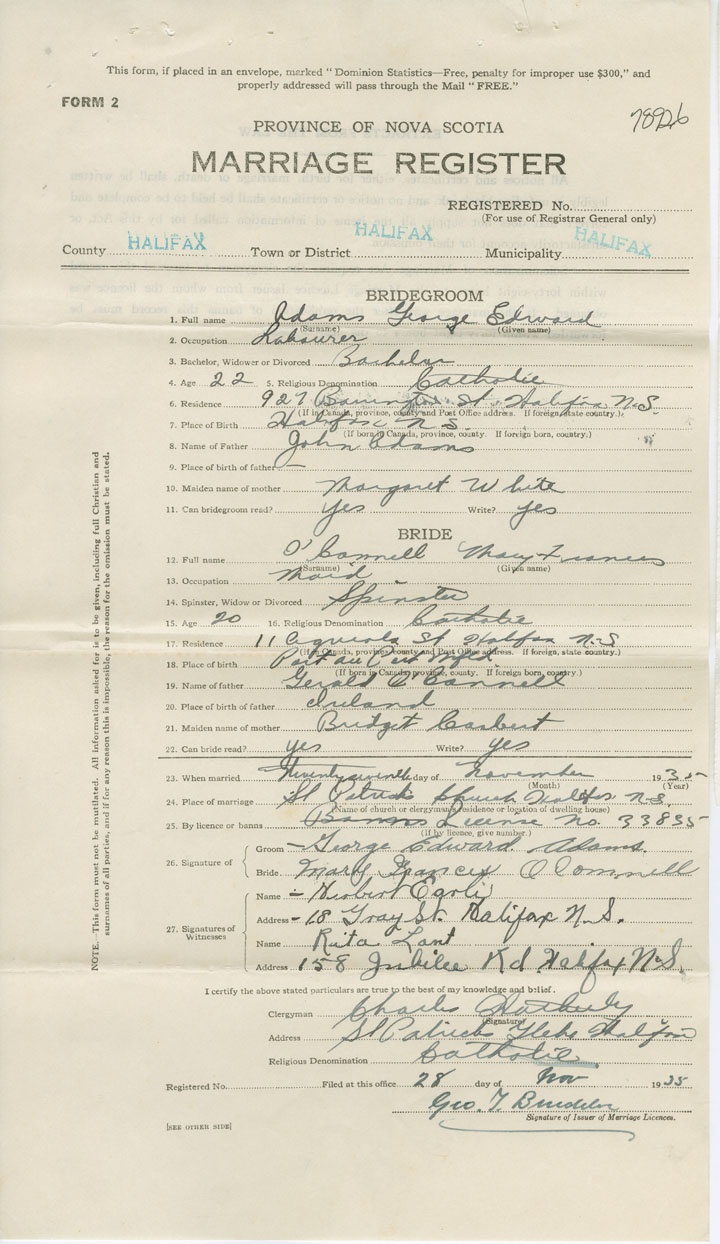 This form, if placed in an envelope, marked "Dominion Statistics—Free, penalty for improper use $300," and
properly addressed will pass through the Mail "FREE."
FORM 2
78926
PROVINCE OF NOVA SCOTIA
MARRIAGE REGISTER
REGISTERED No.
(For use of Registrar General only)
County HALIFAX Town or District HALIFAX Municipality HALIFAX
BRIDEGROOM
1. Full name Adams George Edward
(Surname) (Given name)
2. Occupation Labourer
3. Bachelor, Widower or Divorced Bachelor
4. Age 22 5. Religious Denomination Catholic
6. Residence 927 Barrington St. Halifax N.S.
(If in Canada, province, county and Post Office address. If foreign, state country.)
7. Place of Birth Halifax N.S.
(If born in Canada, province, county. If foreign born, country.)
8. Name of Father John Adams
9. Place of birth of father —
10. Maiden name of mother Margaret White
11. Can bridegroom read? yes Write? yes
BRIDE
12. Full name O'Connell Mary Frances
(Surname) (Given name)
13. Occupation Maid
14. Spinster, Widow or Divorced Spinster
15. Age 20 16. Religious Denomination Catholic
17. Residence 11 St Halifax N.S
(If in Canada, province, county and Post Office address. If foreign, state country.)
18. Place of birth Port au Port Nfld
(If born in Canada, province, county. If foreign born, country.)
19. Name of father Gerald O'Connell
20. Place of birth of father Ireland
21. Maiden name of mother Bridget
22. Can bride read? yes Write? yes
23. When married Twenty seventh day of November 1935
(Month) (Year)
24. Place of marriage St Patricks Church Halifax N.S.
(Name of church or clergyman's residence or location of dwelling house)
25. By licence or banns Banns License No. 33835
(If by licence, give number.)
26. Signature of
Groom — George Edward Adams.
Bride Mary Frances O'Connell
27. Signatures of Witnesses
Name — Herbert
Address - 18 Gray St. Halifax N.S.
Name Rita Lant
Address 158 Jubilee Rd Halifax N.S.
I certify the above stated particulars are true to the best of my knowledge and belief.
Clergyman Charles
(Signature)
Address St Patricks Glebe Halifax
Religious Denomination Catholic
Registered No. Filed at this office 28 day of Nov 1935
Geo. T.
Signature of Issuer of Marriage Licences.
[SEE OTHER SIDE]
NOTE.—This form must not be mutilated. All information asked for is to be given, including full Christian and
surnames of all parties, and if for any reason this is impossible, the reason for the omission must be stated.